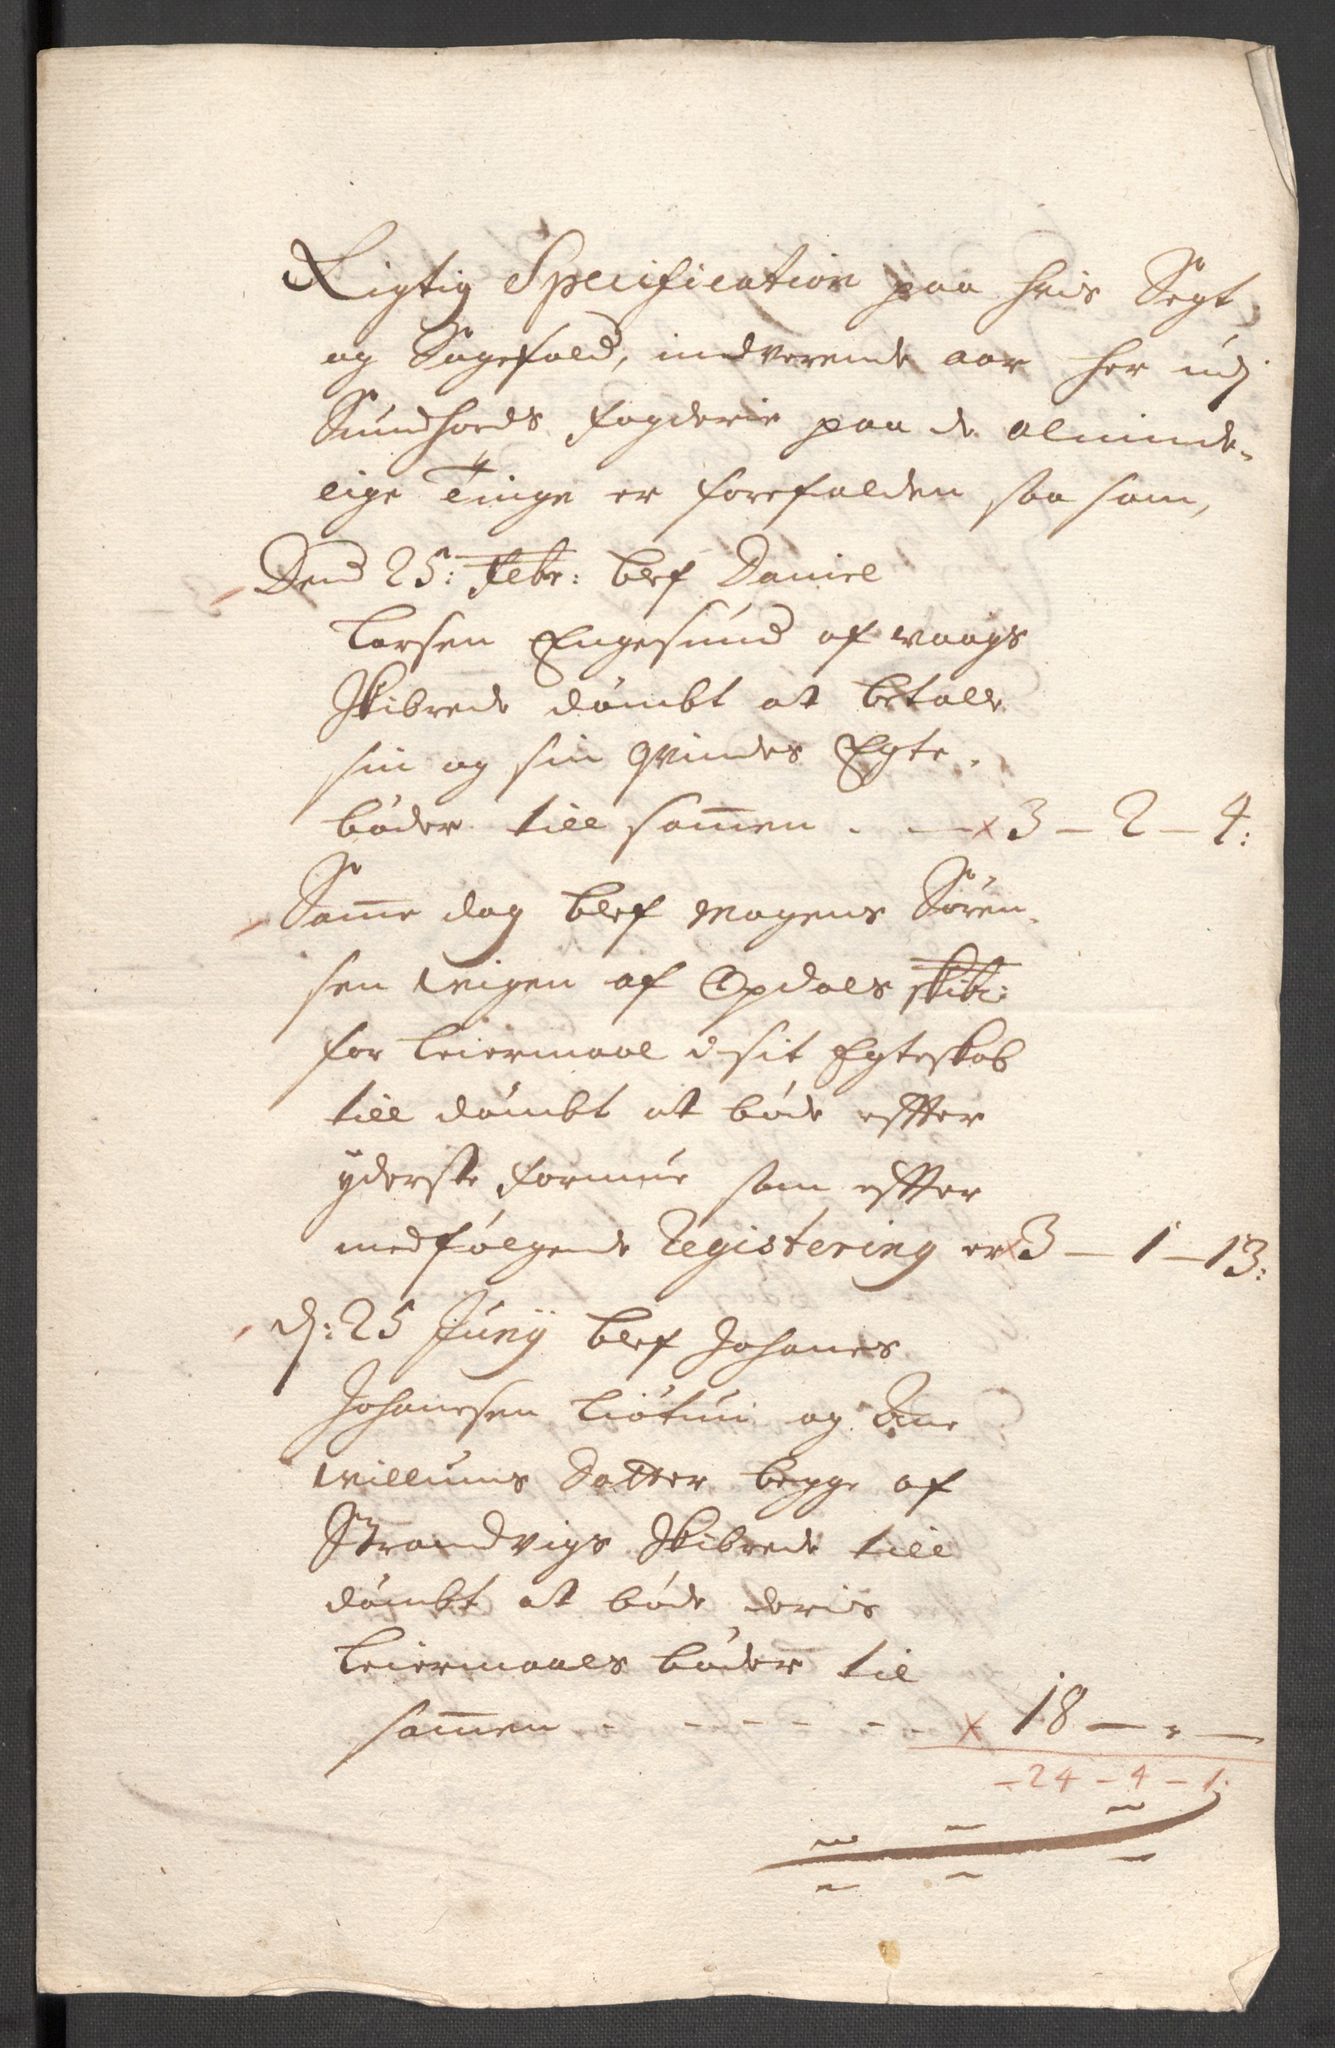 Rigtig Specification paa hvis Sigt
og Sagefald, indverende aar her udj
Sundhords fogderie paa de alminde-
lige Tinge er forefalden saa som,
Dend 25: Febr: blef Daniel
Larsen Engesund af waags
Skibrede dømbt at betalle
sin og sin qvindes Egte-
bøder till samen - - x 3 - 2 - 4:
Same dag blef Mogens Søren-
sen wigen af Opdals skibr:
for leiermaal i sit Egteskab
till dømbt at bøde effter
yderste formue som effter
medfølgende Registering er x 3 - 1 - 13:
d: 25 Junij blef Johanes
Johanesen Liøtun og Ane
Willums Datter begge af
Strandvigs Skibrede till
dømbt at bøde deris
leiermaals bøder til
samen - - - - - - x 18 - " -
- 24 - 4 - 1: